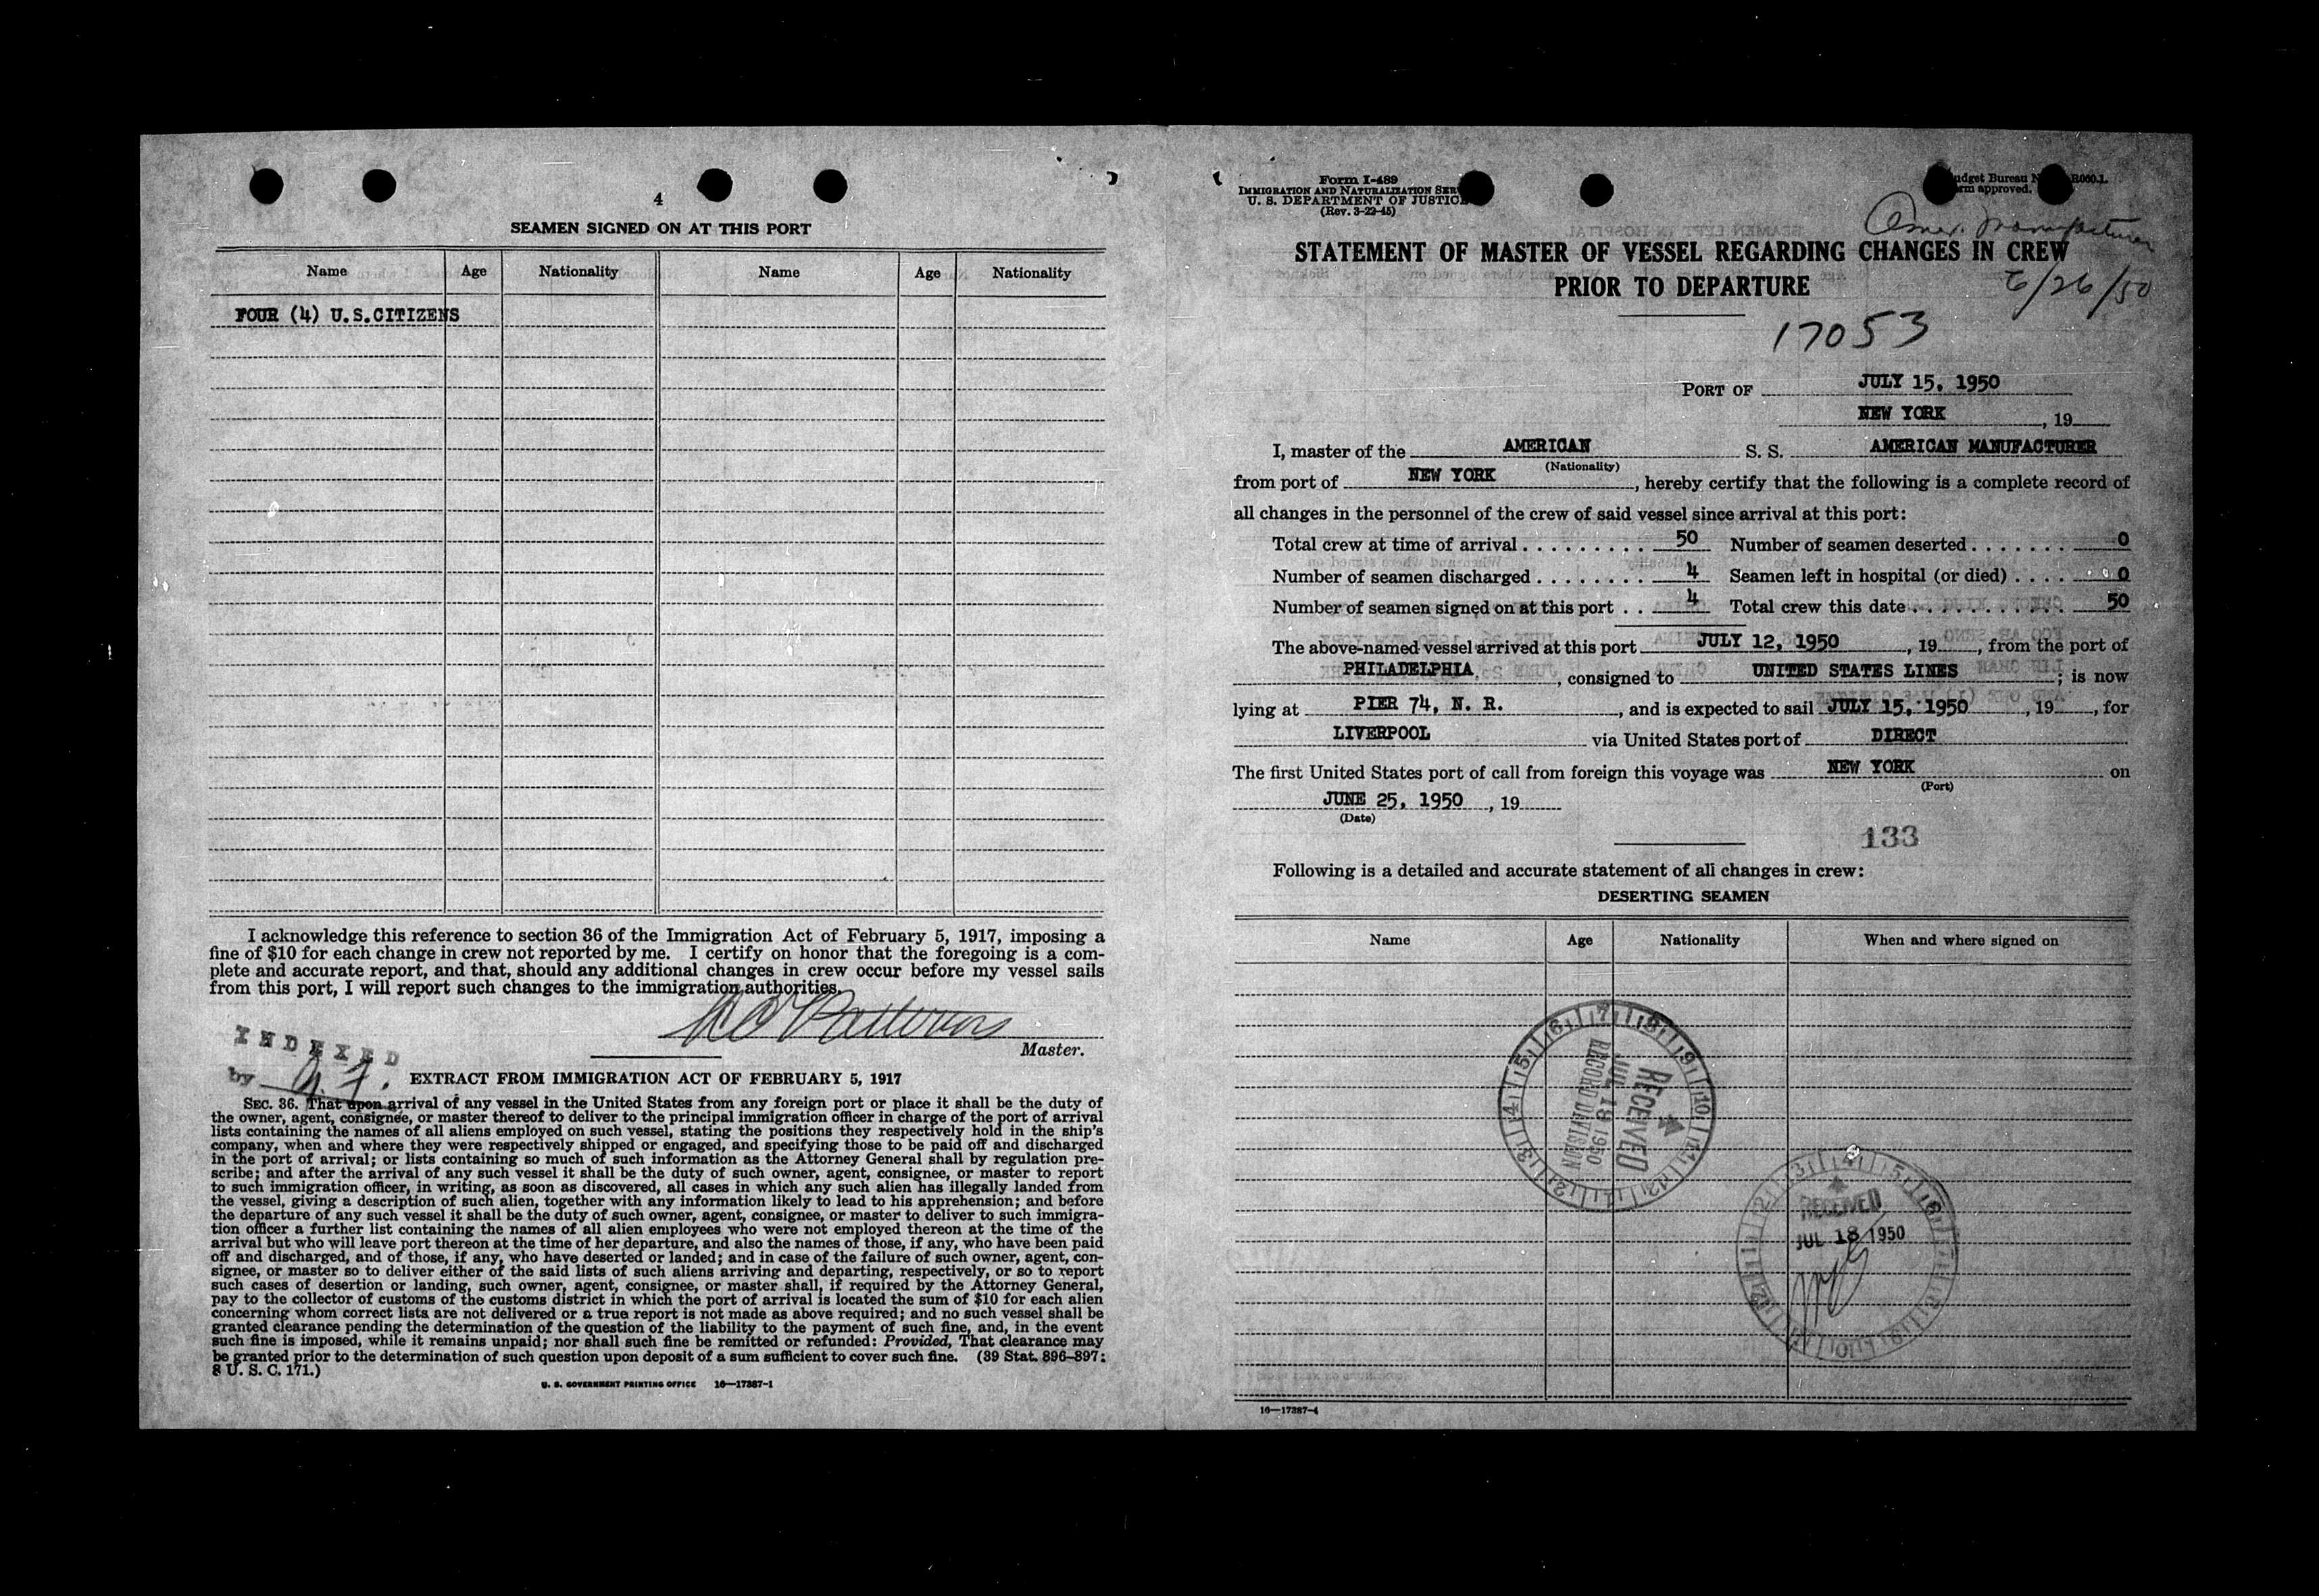 4
SEAMEN SIGNED ON AT THIS PORT
Name Age Nationality Name Age Nationality
FOUR (4) U.S.CITIZENS
I acknowledge this reference to section 36 of the Immigration Act of February 5, 1917, imposing a
fine of $10 for each change in crew not reported by me. I certify on honor that the foregoing is a com-
plete and accurate report, and that, should any additional changes in crew occur before my vessel sails
from this port, I will report such changes to the immigration authorities.
Master.
INDEXED
by
EXTRACT FROM IMMIGRATION ACT OF FEBRUARY 5, 1917
SEC. 36. That upon arrival of any vessel in the United States from any foreign port or place it shall be the duty of
the owner, agent, consignee, or master thereof to deliver to the principal immigration officer in charge of the port of arrival
lists containing the names of all aliens employed on such vessel, stating the positions they respectively hold in the ship's
company, when and where they were respectively shipped or engaged, and specifying those to be paid off and discharged
in the port of arrival; or lists containing so much of such information as the Attorney General shall by regulation pre-
scribe; and after the arrival of any such vessel it shall be the duty of such owner, agent, consignee, or master to report
to such immigration officer, in writing, as soon as discovered, all cases in which any such alien has illegally landed from
the vessel, giving a description of such alien, together with any information likely to lead to his apprehension; and before
the departure of any such vessel it shall be the duty of such owner, agent, consignee, or master to deliver to such immigra-
tion officer a further list containing the names of all alien employees who were not employed thereon at the time of the
arrival but who will leave port thereon at the time of her departure, and also the names of those, if any, who have been paid
off and discharged, and of those, if any, who have deserted or landed; and in case of the failure of such owner, agent, con-
signee, or master so to deliver either of the said lists of such aliens arriving and departing, respectively, or so to report
such cases of desertion or landing, such owner, agent, consignee, or master shall, if required by the Attorney General,
pay to the collector of customs of the customs district in which the port of arrival is located the sum of $10 for each alien
concerning whom correct lists are not delivered or a true report is not made as above required; and no such vessel shall be
granted clearance pending the determination of the question of the liability to the payment of such fine, and, in the event
such fine is imposed, while it remains unpaid; nor shall such fine be remitted or refunded: Provided, That clearance may
be granted prior to the determination of such question upon deposit of a sum sufficient to cover such fine. (39 Stat. 896-897;
8 U. S. C. 171.)
U. S. GOVERNMENT PRINTING OFFICE 16—17387-1
Form I-489
IMMIGRATION AND NATURALIZATION
U. S. DEPARTMENT OF JUSTICE
(Rev. 3-22-45)
Budget Bureau
approved.
Amer. Manufacturer
6/26/50
STATEMENT OF MASTER OF VESSEL REGARDING CHANGES IN CREW
PRIOR TO DEPARTURE
17053
PORT OF JULY 15, 1950
NEW YORK, 19
I, master of the AMERICAN S. S. AMERICAN MANUFACTURER
(Nationality)
from port of NEW YORK, hereby certify that the following is a complete record of
all changes in the personnel of the crew of said vessel since arrival at this port:
Total crew at time of arrival 50 Number of seamen deserted 0
Number of seamen discharged 4 Seamen left in hospital (or died) 0
Number of seamen signed on at this port 4 Total crew this date 50
The above-named vessel arrived at this port JULY 12, 1950, 19, from the port of
PHILADELPHIA, consigned to UNITED STATES LINES; is now
lying at PIER 74, N. R., and is expected to sail JULY 15, 1950, 19, for
LIVERPOOL via United States port of DIRECT
The first United States port of call from foreign this voyage was NEW YORK on
(Port)
JUNE 25, 1950, 19
(Date)
133
Following is a detailed and accurate statement of all changes in crew:
DESERTING SEAMEN
Name Age Nationality When and where signed on
RECEIVED
JUL 19 1950
RECORD DIVISION
RECEIVED
JUL 18 1950
16—17387-4